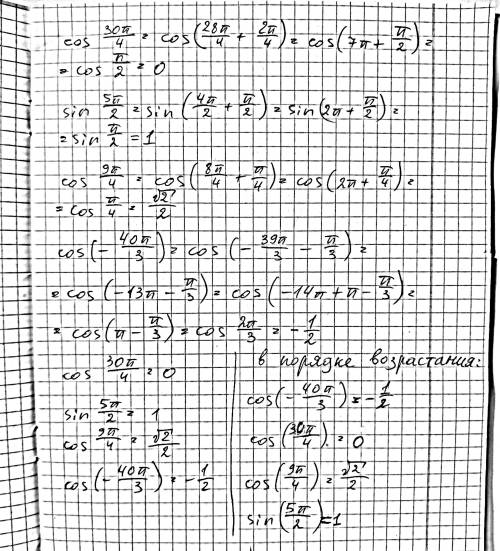 cos 30π/4 = cos(28π/4 + 2π/4) = cos(7π + π/2) =
= cos π/2 = 0
sin 5π/2 = sin(4π/2 + π/2) = sin(2π + π/2) =
= sin π/2 = 1
cos 9π/4 = cos(8π/4 + π/4) = cos(2π + π/4) =
= cos π/4 = √2/2
cos(-40π/3) = cos(-39π/3 - π/3) =
= cos(-13π - π/3) = cos(-14π + π - π/3) =
= cos(π - π/3) = cos 2π/3 = -1/2
cos 30π/4 = 0
sin 5π/2 = 1
cos 9π/4 = √2/2
cos(-40π/3) = -1/2
в порядке возрастания:
cos(-40π/3) = -1/2
cos(30π/4) = 0
cos(9π/4) = √2/2
sin(5π/2) = 1